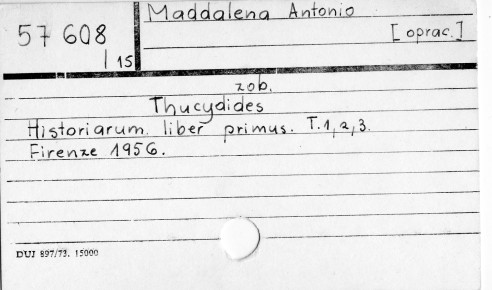 57 608
| 15
Maddalena Antonio
[oprac.]
zob.
Thucydides
Historiarum liber primus. T.1,2,3.
Firenze 1956.
DUJ 897/73. 15000